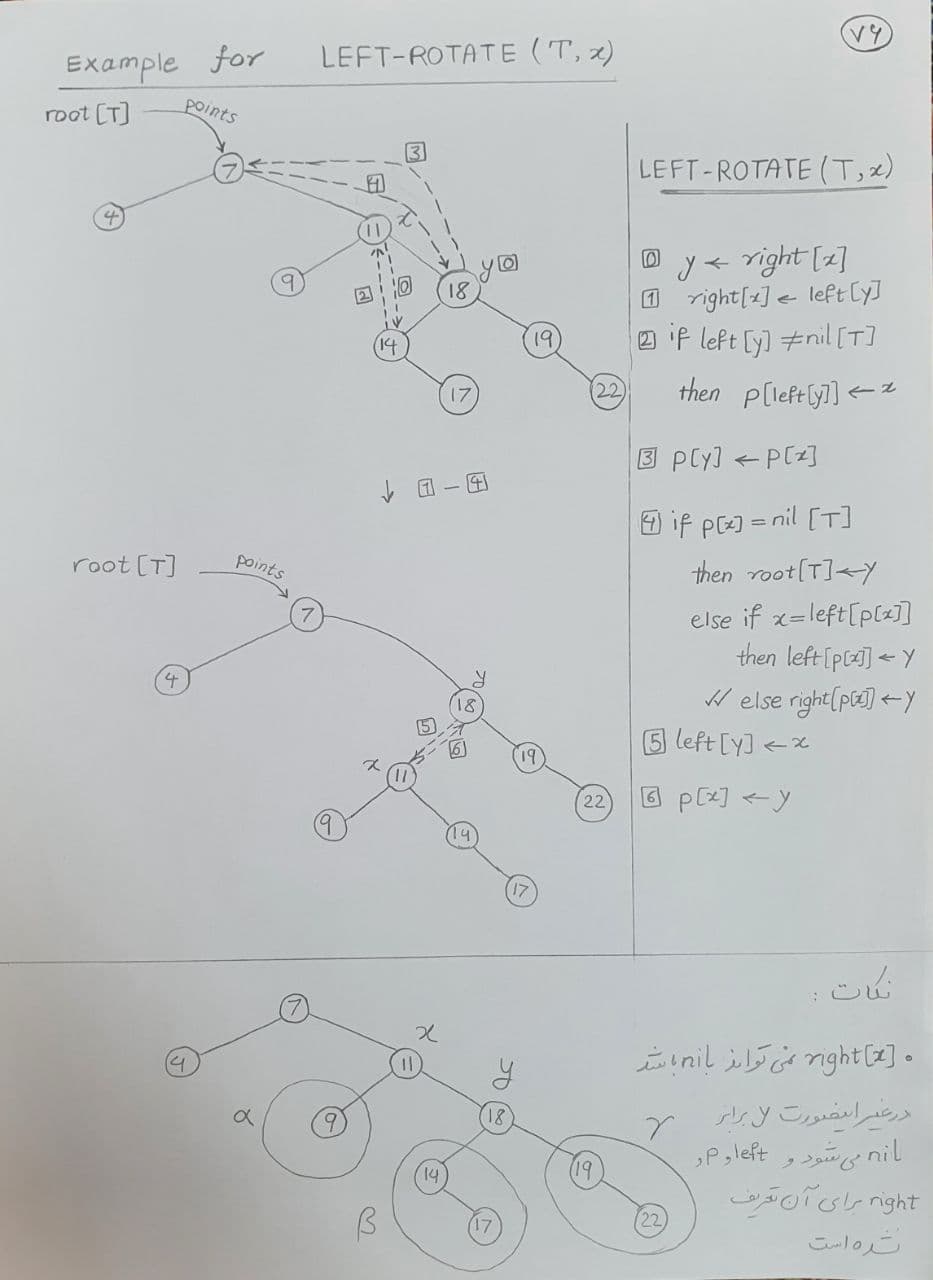 ۷۶
Example for LEFT-ROTATE (T, x)
root [T] points
7
4
3
4
11 x
9
2 0
18 y 0
14
19
17
22
↓ 1 - 4
root [T] points
7
4
y
18
5
6
x 11
19
9
14
22
17
LEFT-ROTATE (T, x)
0 y ← right [x]
1 right[x] ← left[y]
2 if left [y] ≠ nil [T]
then p[left[y]] ← x
3 p[y] ← p[x]
4 if p[x] = nil [T]
then root[T] ← y
else if x = left[p[x]]
then left[p[x]] ← y
// else right[p[x]] ← y
5 left [y] ← x
6 p[x] ← y
7
4
x
11
y
α
9
18
γ
14
19
β
17
22
نکات :
• right[x] نمی تواند nil باشد
در غیر اینصورت y برابر
nil می شود و left و p و
right برای آن تعریف
نشده است